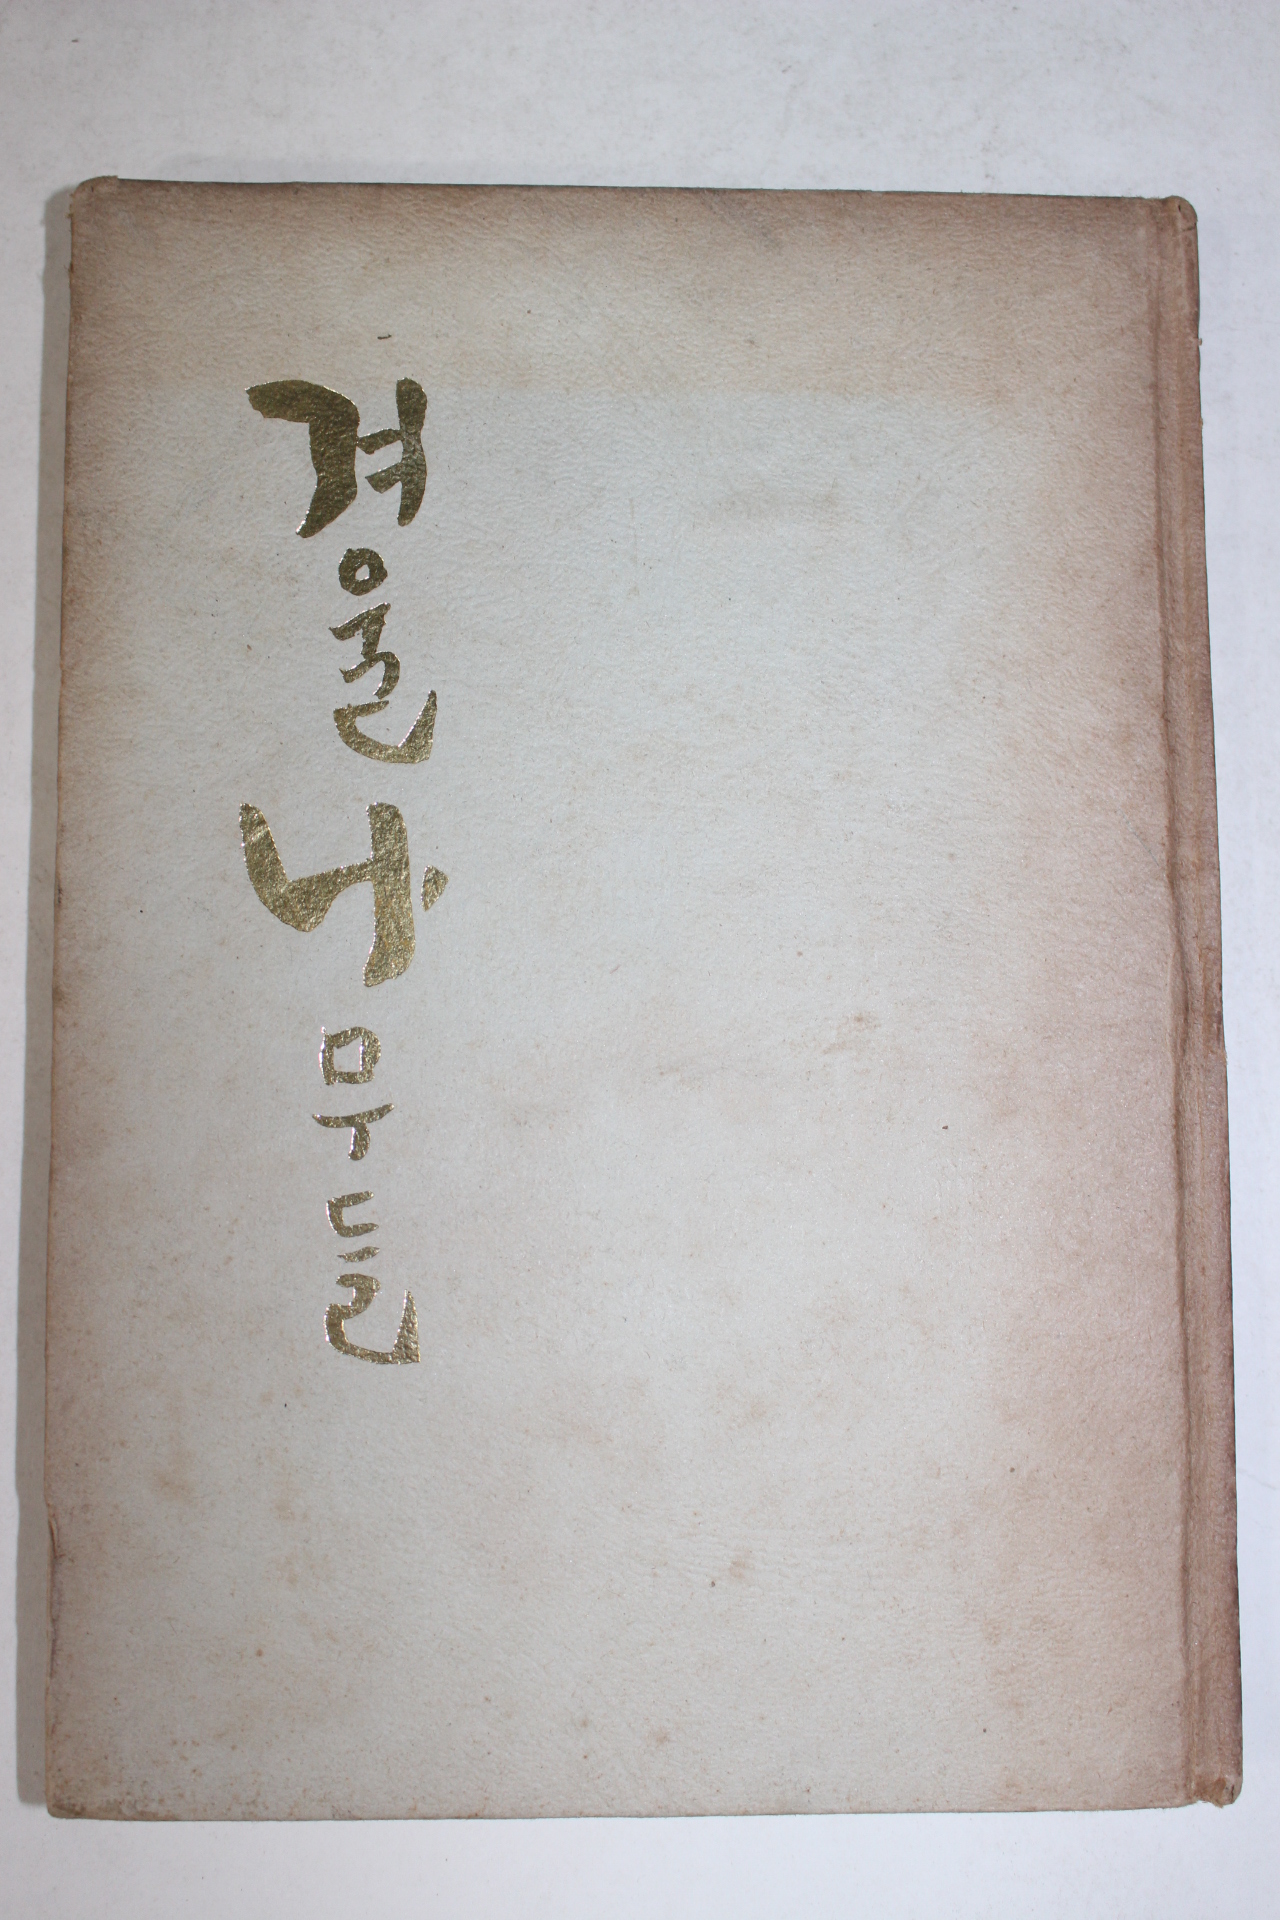 겨울 나무들